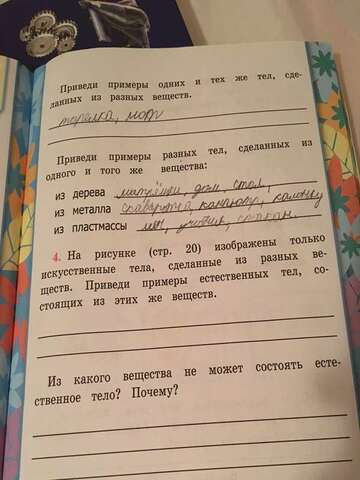 Приведи примеры одних и тех же тел, сде-
данных из разных веществ.
тарелка,
Приведи примеры разных тел, сделанных из
одного и того же вещества:
из дерева матрёшки, дом, стол,
из металла сковорода,
из пластмассы мяч, стакан.
4. На рисунке (стр. 20) изображены только
искусственные тела, сделанные из разных ве-
ществ. Приведи примеры естественных тел, со-
стоящих из этих же веществ.
Из какого вещества не может состоять есте-
ственное тело? Почему?